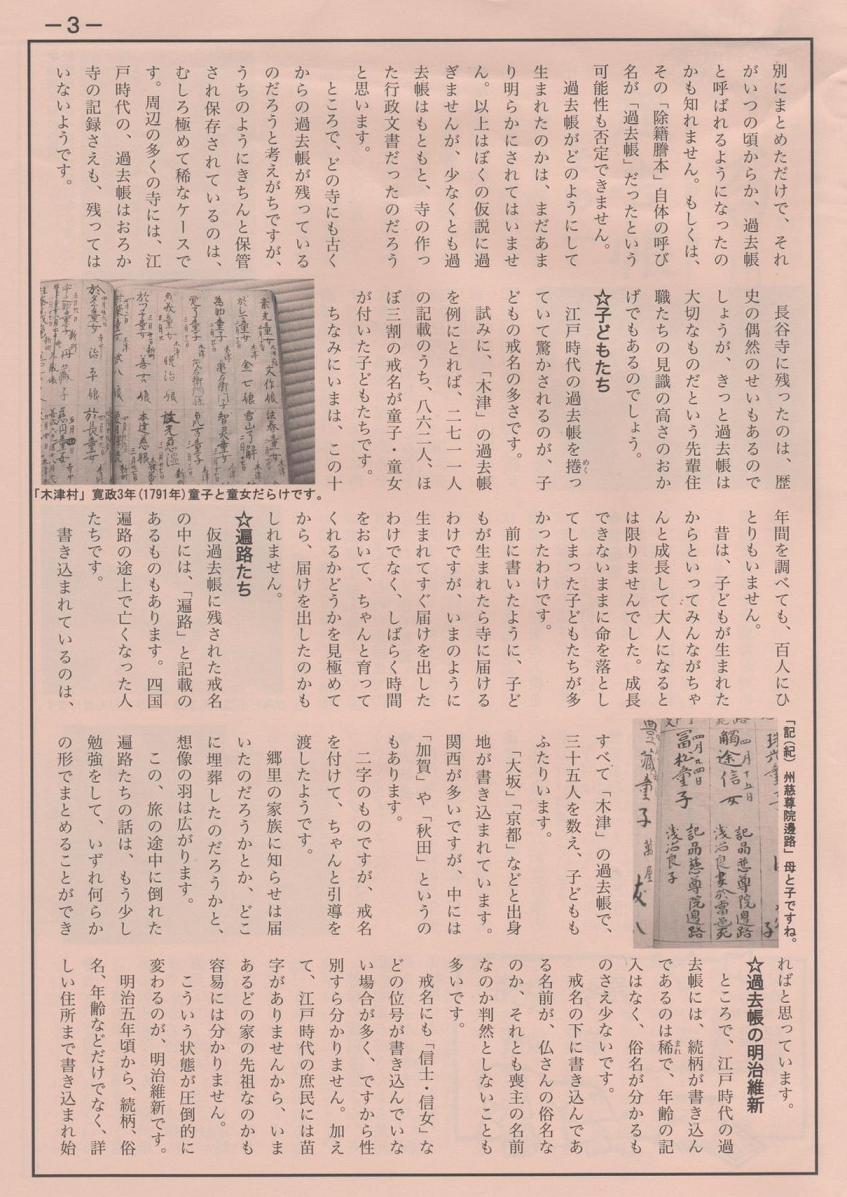 －3－
別にまとめただけで、それ
がいつの頃からか、過去帳
と呼ばれるようになったの
かも知れません。もしくは、
その「除籍謄本」自体の呼び
名が「過去帳」だったという
可能性も否定できません。
過去帳がどのようにして
生まれたのかは、まだあま
り明らかにされてはいませ
ん。以上はぼくの仮説に過
ぎませんが、少なくとも過
去帳はもともと、寺の作っ
た行政文書だったのだろう
と思います。
ところで、どの寺にも古く
からの過去帳が残っている
のだろうと考えがちですが、
うちのようにきちんと保管
され保存されているのは、
むしろ極めて稀なケースで
す。周辺の多くの寺には、江
戸時代の、過去帳はおろか
寺の記録さえも、残っては
いないようです。
長谷寺に残ったのは、歴
史の偶然のせいもあるので
しょうが、きっと過去帳は
大切なものだという先輩住
職たちの見識の高さのおか
げでもあるのでしょう。
☆子どもたち
江戸時代の過去帳を捲っ
めく
ていて驚かされるのが、子
どもの戒名の多さです。
試みに、「木津」の過去帳
を例にとれば、二七一一人
の記載のうち、八六二人、ほ
ぼ三割の戒名が童子・童女
が付いた子どもたちです。
ちなみにいまは、この十
「木津村」寛政3年(1791年)童子と童女だらけです。
年間を調べても、百人にひ
とりもいません。
昔は、子どもが生まれた
からといってみんながちゃ
んと成長して大人になると
は限りませんでした。成長
できないままに命を落とし
てしまった子どもたちが多
かったわけです。
前に書いたように、子ど
もが生まれたら寺に届ける
わけですが、いまのように
生まれてすぐ届けを出した
わけでなく、しばらく時間
をおいて、ちゃんと育って
くれるかどうかを見極めて
から、届けを出したのかも
しれません。
☆遍路たち
仮過去帳に残された戒名
の中には、「遍路」と記載の
あるものもあります。四国
遍路の途上で亡くなった人
たちです。
書き込まれているのは、
「記(紀)州慈尊院邊路」母と子ですね。
すべて「木津」の過去帳で、
三十五人を数え、子どもも
ふたりいます。
「大坂」「京都」などと出身
地が書き込まれています。
関西が多いですが、中には
「加賀」や「秋田」というの
もあります。
二字のものですが、戒名
を付けて、ちゃんと引導を
渡したようです。
郷里の家族に知らせは届
いたのだろうかとか、どこ
に埋葬したのだろうかと、
想像の羽は広がります。
この、旅の途中に倒れた
遍路たちの話は、もう少し
勉強をして、いずれ何らか
の形でまとめることができ
ればと思っています。
☆過去帳の明治維新
ところで、江戸時代の過
去帳には、続柄が書き込ん
であるのは稀で、年齢の記
まれ
入はなく、俗名が分かるも
のさえ少ないです。
戒名の下に書き込んであ
る名前が、仏さんの俗名な
のか、それとも喪主の名前
なのか判然としないことも
多いです。
戒名にも「信士・信女」な
どの位号が書き込んでいな
い場合が多く、ですから性
別すら分かりません。加え
て、江戸時代の庶民には苗
字がありませんから、いま
あるどの家の先祖なのかも
容易には分かりません。
こういう状態が圧倒的に
変わるのが、明治維新です。
明治五年頃から、続柄、俗
名、年齢などだけでなく、詳
しい住所まで書き込まれ始